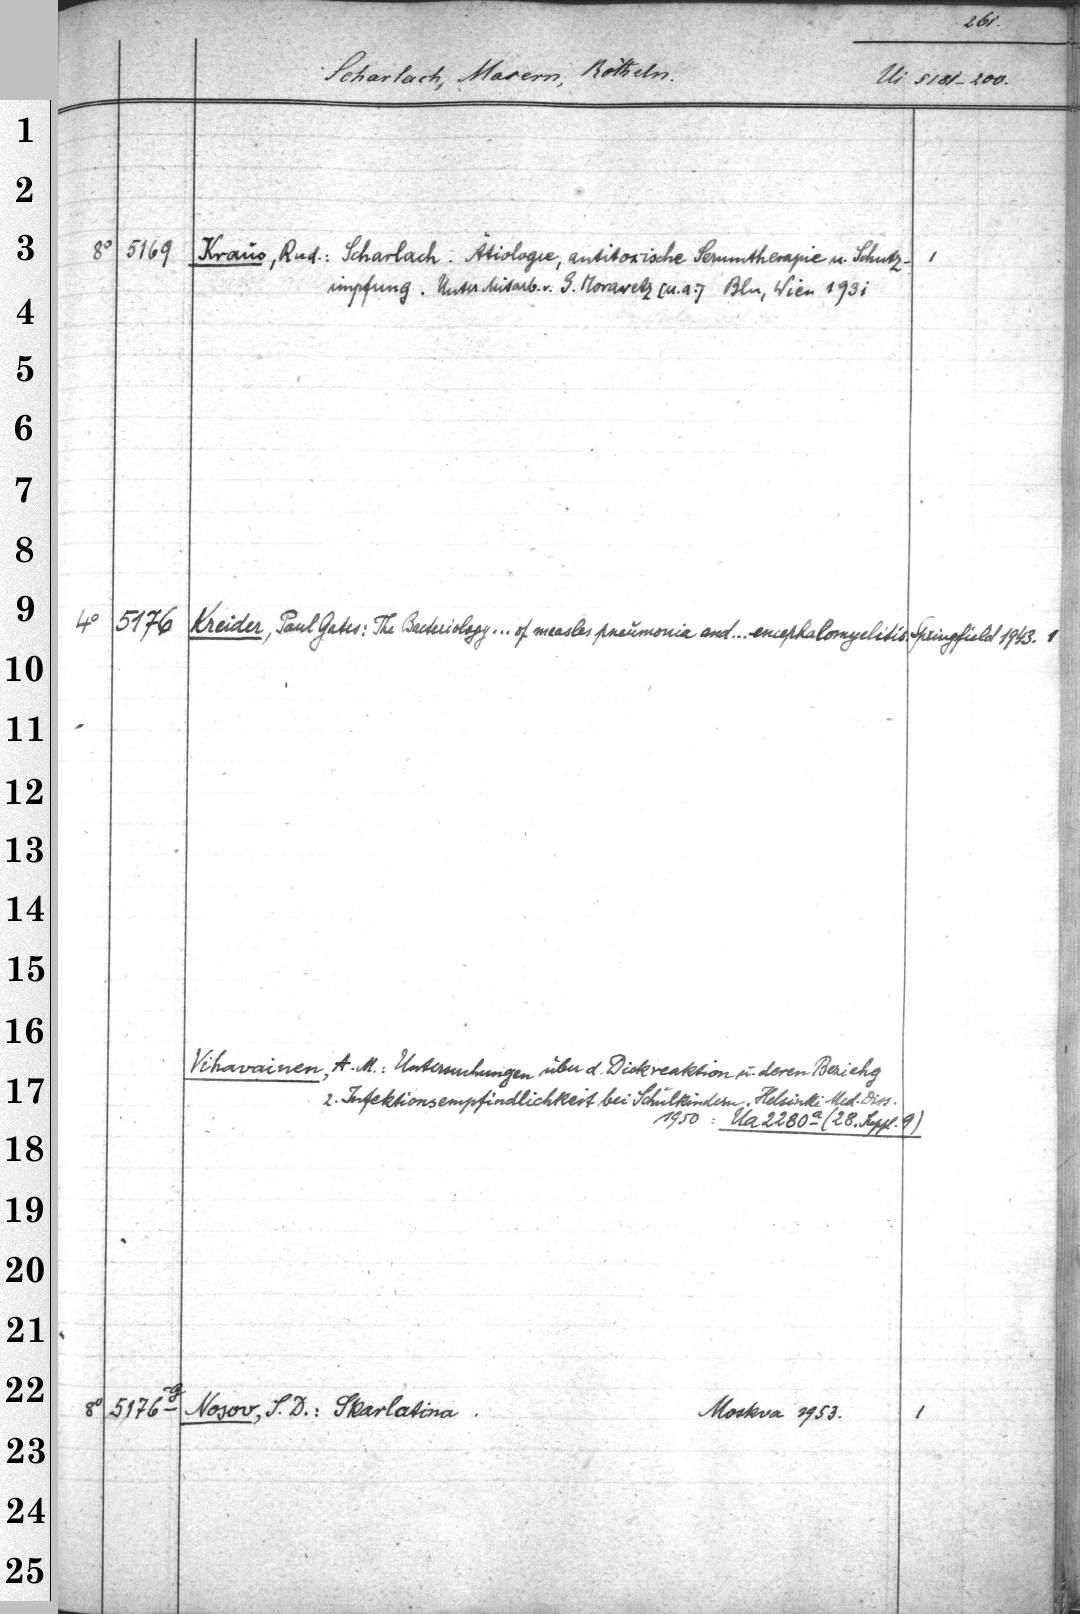 261.
Scharlach, Masern, Rötheln. Ui 5181-200.
1
2
3 8° 5169 Kraus, Rud.: Scharlach. Ätiologie, antitoxische Serumtherapie u. Schutz- 1
impfung. Unter Mitarb. v. G. Morawetz [u.a.] Bln, Wien 1931
4
5
6
7
8
9 4° 5176 Kreider, Paul Gates: The Bacteriology... of measles pneumonia and... encephalomyelitis. Springfield 1943. 1
10
11
12
13
14
15
16
Vihavainen, A. M.: Untersuchungen über d. Dickreaktion u. deren Beziehg
17 z. Infektionsempfindlichkeit bei Schulkindern. Helsinki Med. Diss.
1950 : Ua 2280a (28. Suppl. 9)
18
19
20
21
22 8° 5176g Nosov, S. D.: Skarlatina. Moskva 1953. 1
23
24
25